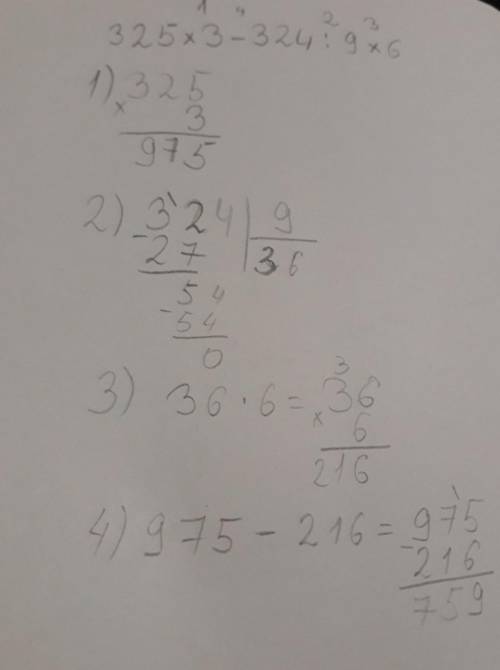 1 4 2 3
325×3-324:9×6
1) 325
× 3
975
2) 324 | 9
-27 | 36
54
-54
0
3) 36·6= 3
×36
6
216
4) 975-216= 975
-216
759